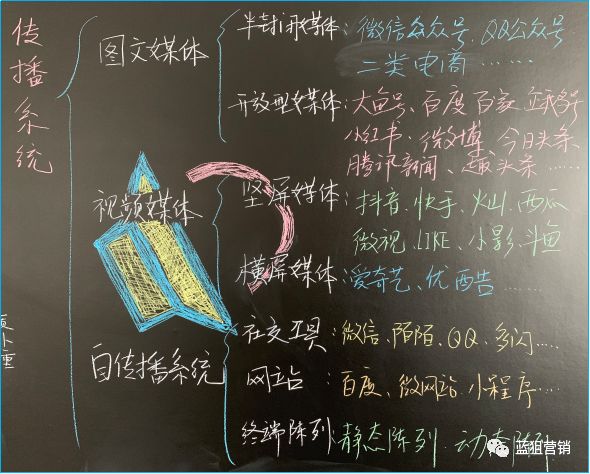 传播系统
图文媒体
半封闭媒体:微信公众号、QQ公众号
二类电商……
开放型媒体:大鱼号、百度百家、
小红书、微博、今日头条、
腾讯新闻、趣头条……
视频媒体
竖屏媒体:抖音、快手、火山、西瓜
微视、LIKE、小影、斗鱼
横屏媒体:爱奇艺、优酷……
自传播系统
社交工具:微信、陌陌、QQ、多闪……
网站:百度、微网站、小程序……
终端阵列:静态阵列、动态阵列
蓝狙营销